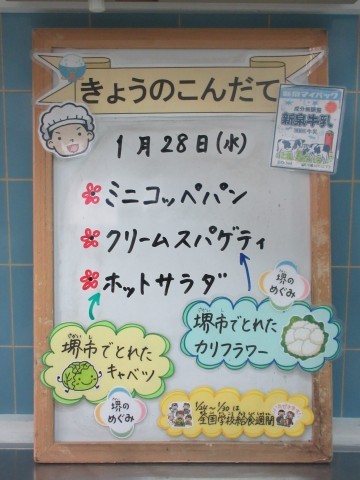 きょうのこんだて
1月28日(水)
ミニコッペパン
クリームスパゲティ
ホットサラダ
堺のめぐみ
堺市でとれた
カリフラワー
堺市でとれた
キャベツ
堺のめぐみ
1/24～1/30は
全国学校給食週間
新泉牛乳